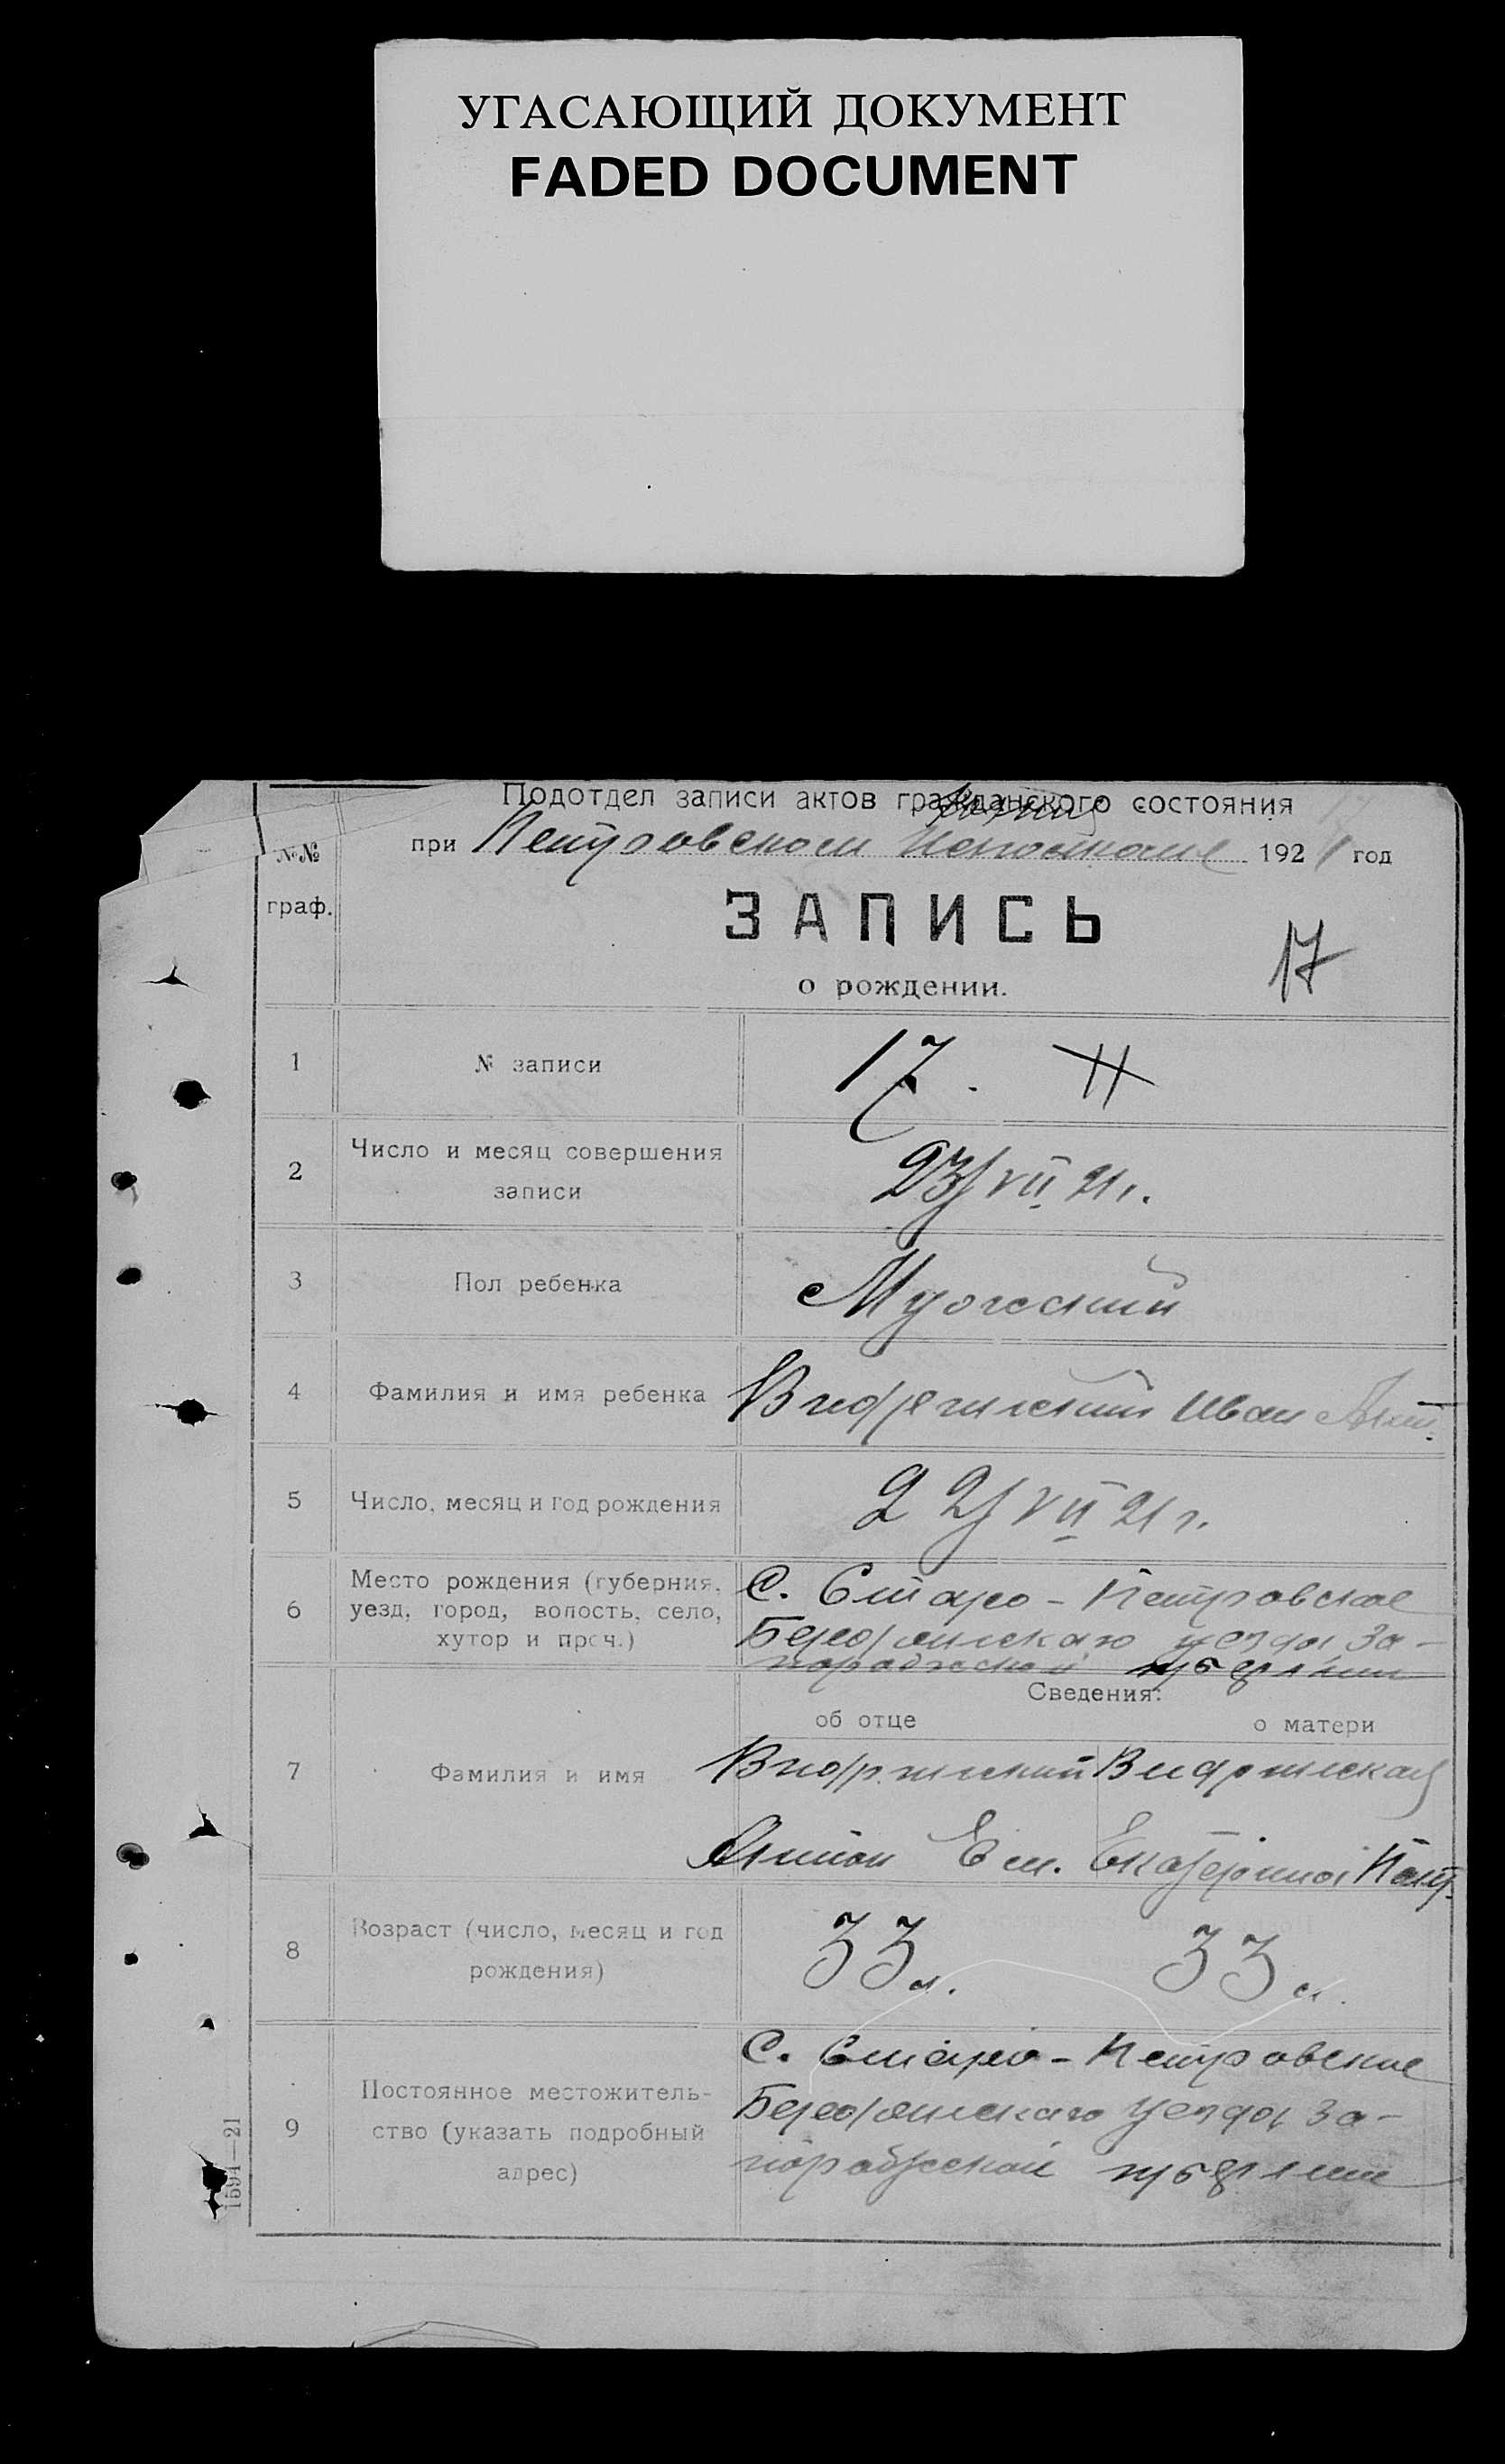 УГАСАЮЩИЙ ДОКУМЕНТ
FADED DOCUMENT
Подотдел записи актов гражданского состояния
при Петровском 1921 год
№№
граф.
ЗАПИСЬ
17
о рождении.
1 № записи 17.
2 Число и месяц совершения
записи
23/VII 21 г.
3 Пол ребенка Мужеский
4 Фамилия и имя ребенка Иван Ант.
5 Число, месяц и год рождения 22/VII 21 г.
6 Место рождения (губерния,
уезд, город, волость, село,
хутор и проч.)
С. Старо-Петровское
Бердянскаго уезда За-
порожской губернии
Сведения:
об отце о матери
7 Фамилия и имя
Антон Ем. Екатерина
8 Возраст (число, месяц и год
рождения)
33 л. 33 л.
9 Постоянное местожитель-
ство (указать подробный
адрес)
С. Старо-Петровское
Бердянскаго уезда За-
порожской губернии
1594—21